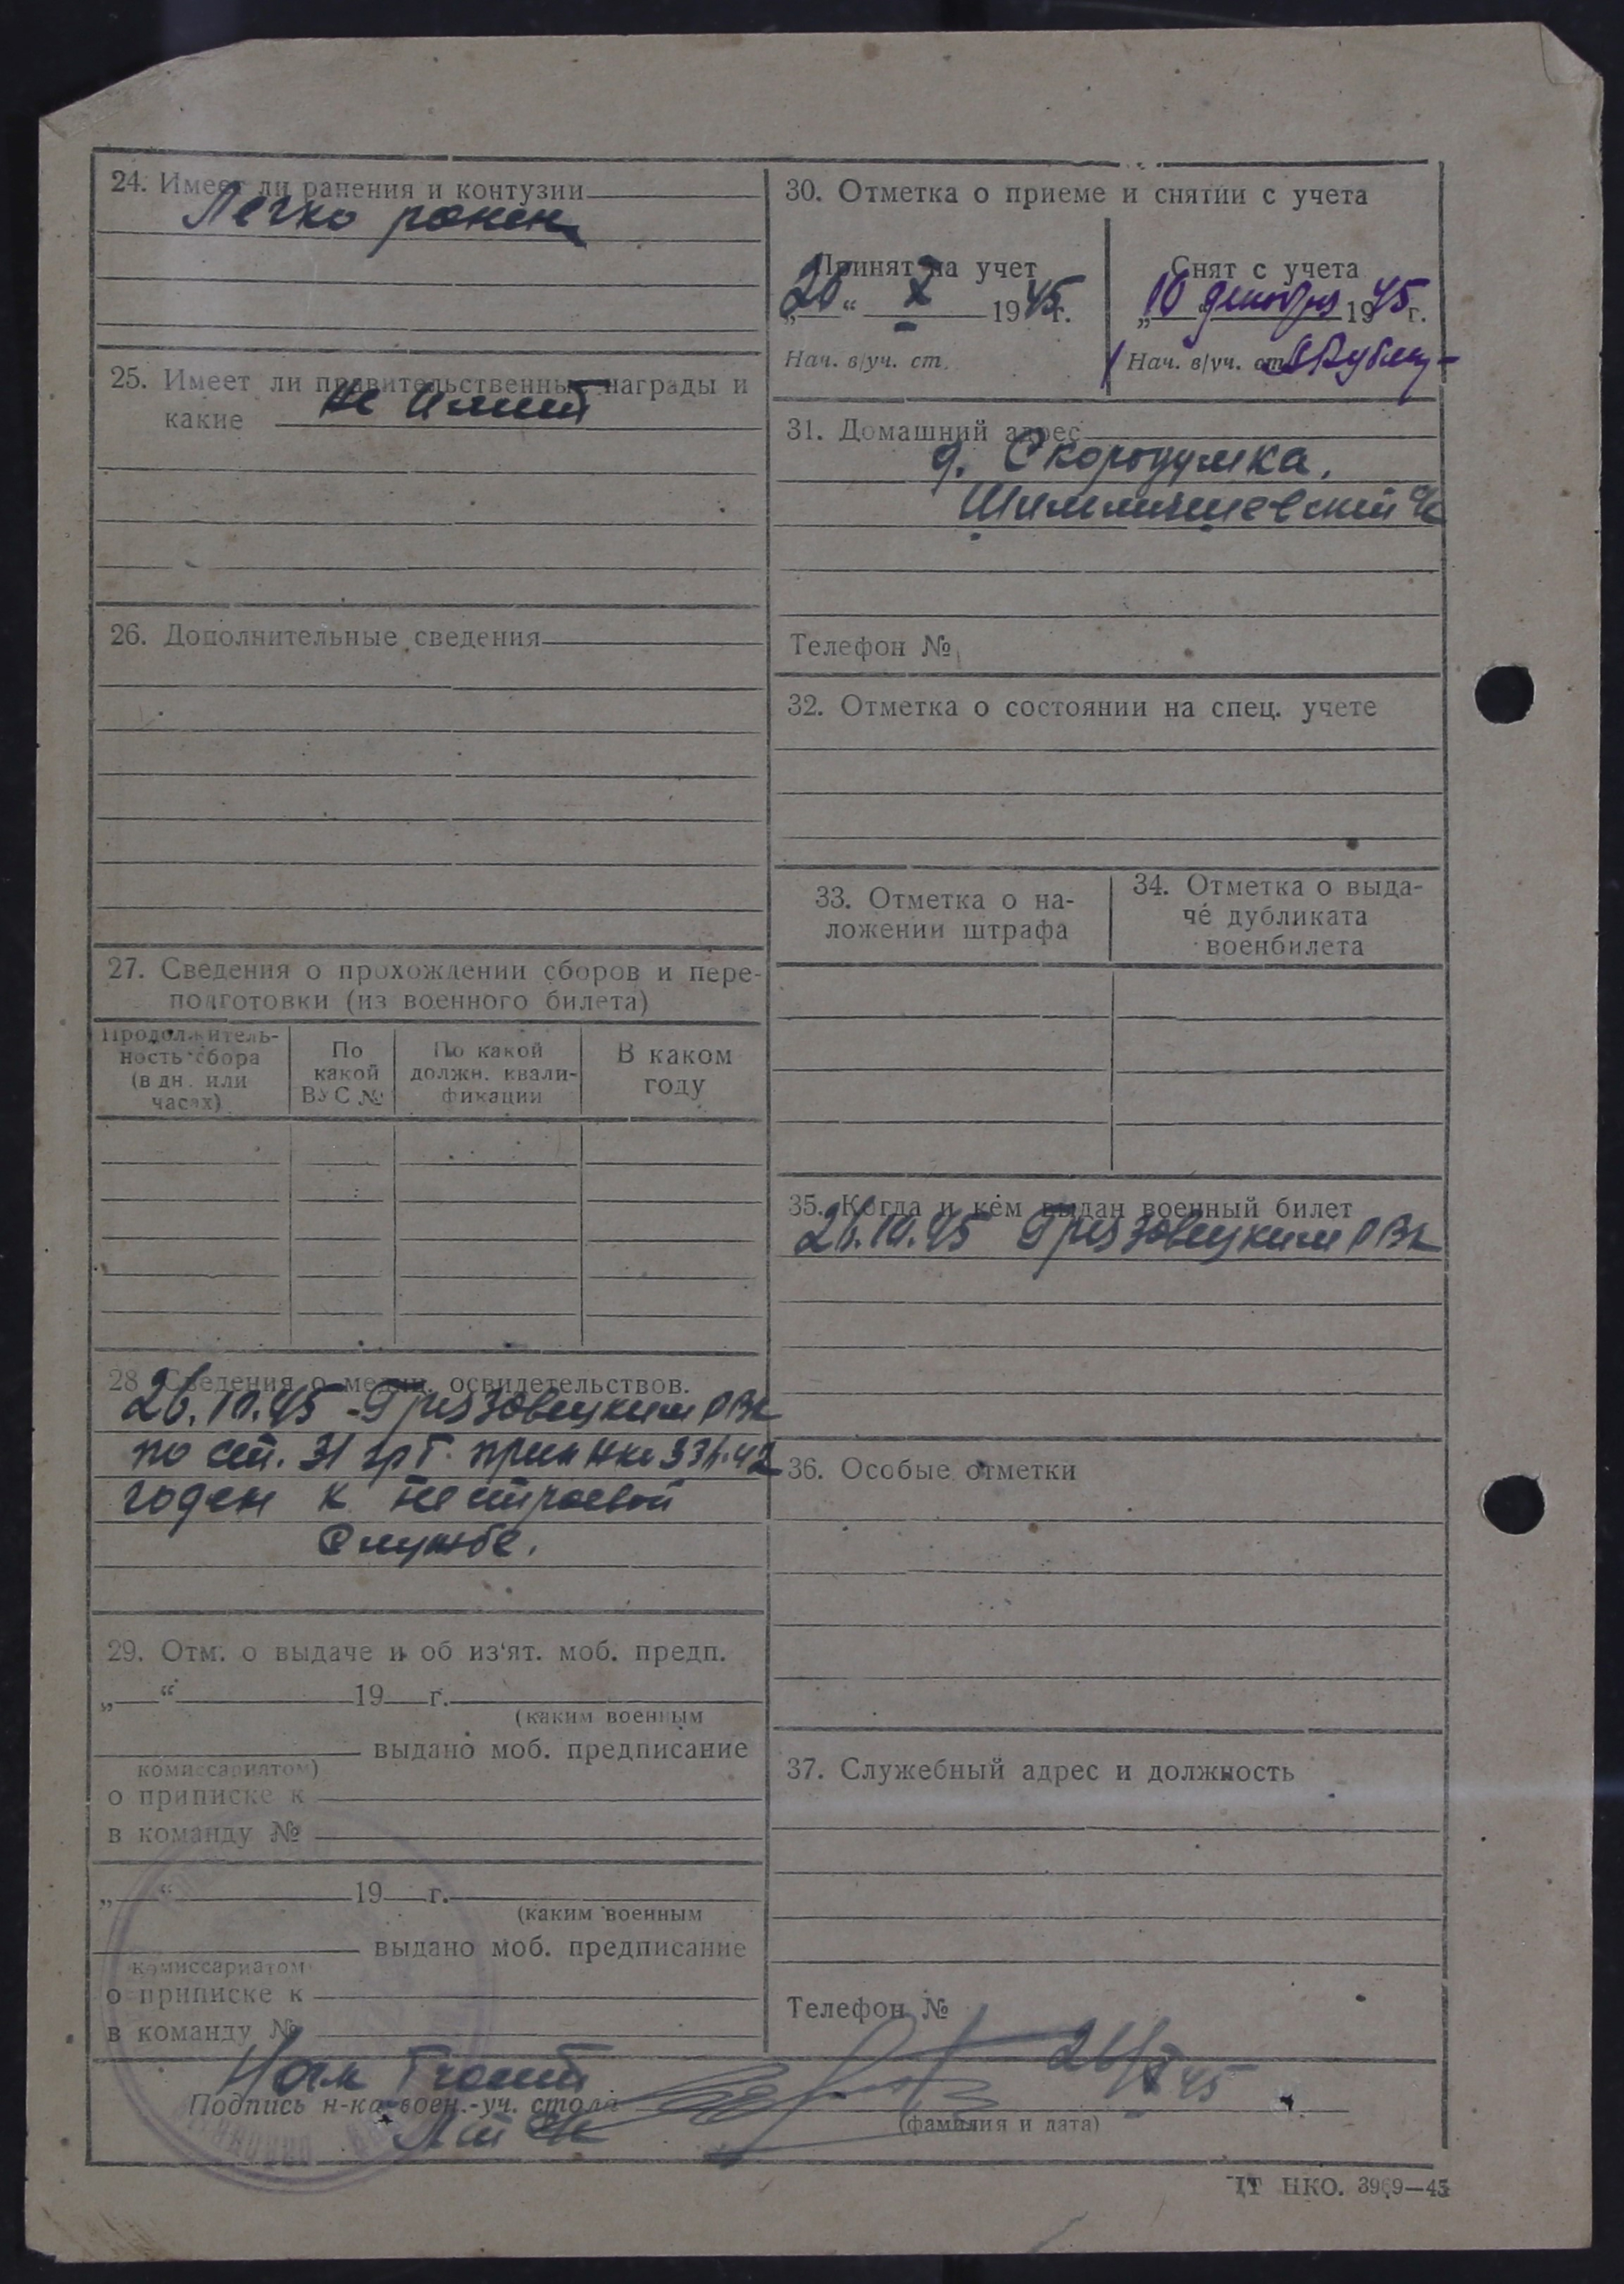 24. Имеет ли ранения и контузии
Легко ранен
25. Имеет ли правительственные награды и
какие не имеет
26. Дополнительные сведения
27. Сведения о прохождении сборов и пере-
подготовки (из военного билета)
Продолжитель-
ность сбора
(в дн. или
часах)
По
какой
ВУС №
По какой
должн. квали-
фикации
В каком
году
28 Сведения о медиц. освидетельствов.
26.10.45 Грязовецким РВК
по ст. 31 гр Г. прик НКО 336-42
годен к нестроевой
службе.
29. Отм. о выдаче и об из‘ят. моб. предп.
„ “ 19 г.
(каким военным
выдано моб. предписание
комиссариатом)
о приписке к
в команду №
„ “ 19 г.
(каким военным
выдано моб. предписание
комиссариатом
о приписке к
в команду №
30. Отметка о приеме и снятии с учета
Принят на учет
„26“ X 1945г.
Нач. в/уч. ст.
Снят с учета
„10 декабря 1945г.
Нач. в/уч. ст.
31. Домашний адрес
д. Скородумка,
с/с
Телефон №
32. Отметка о состоянии на спец. учете
33. Отметка о на-
ложении штрафа
34. Отметка о выда-
че дубликата
военбилета
35. Когда и кем выдан военный билет
26.10.45 Грязовецким РВК
36. Особые отметки
37. Служебный адрес и должность
Телефон №
Нач части
26/X 45
Подпись н-ка воен.-уч. стола
(фамилия и дата)
ЦТ НКО. 3969—45